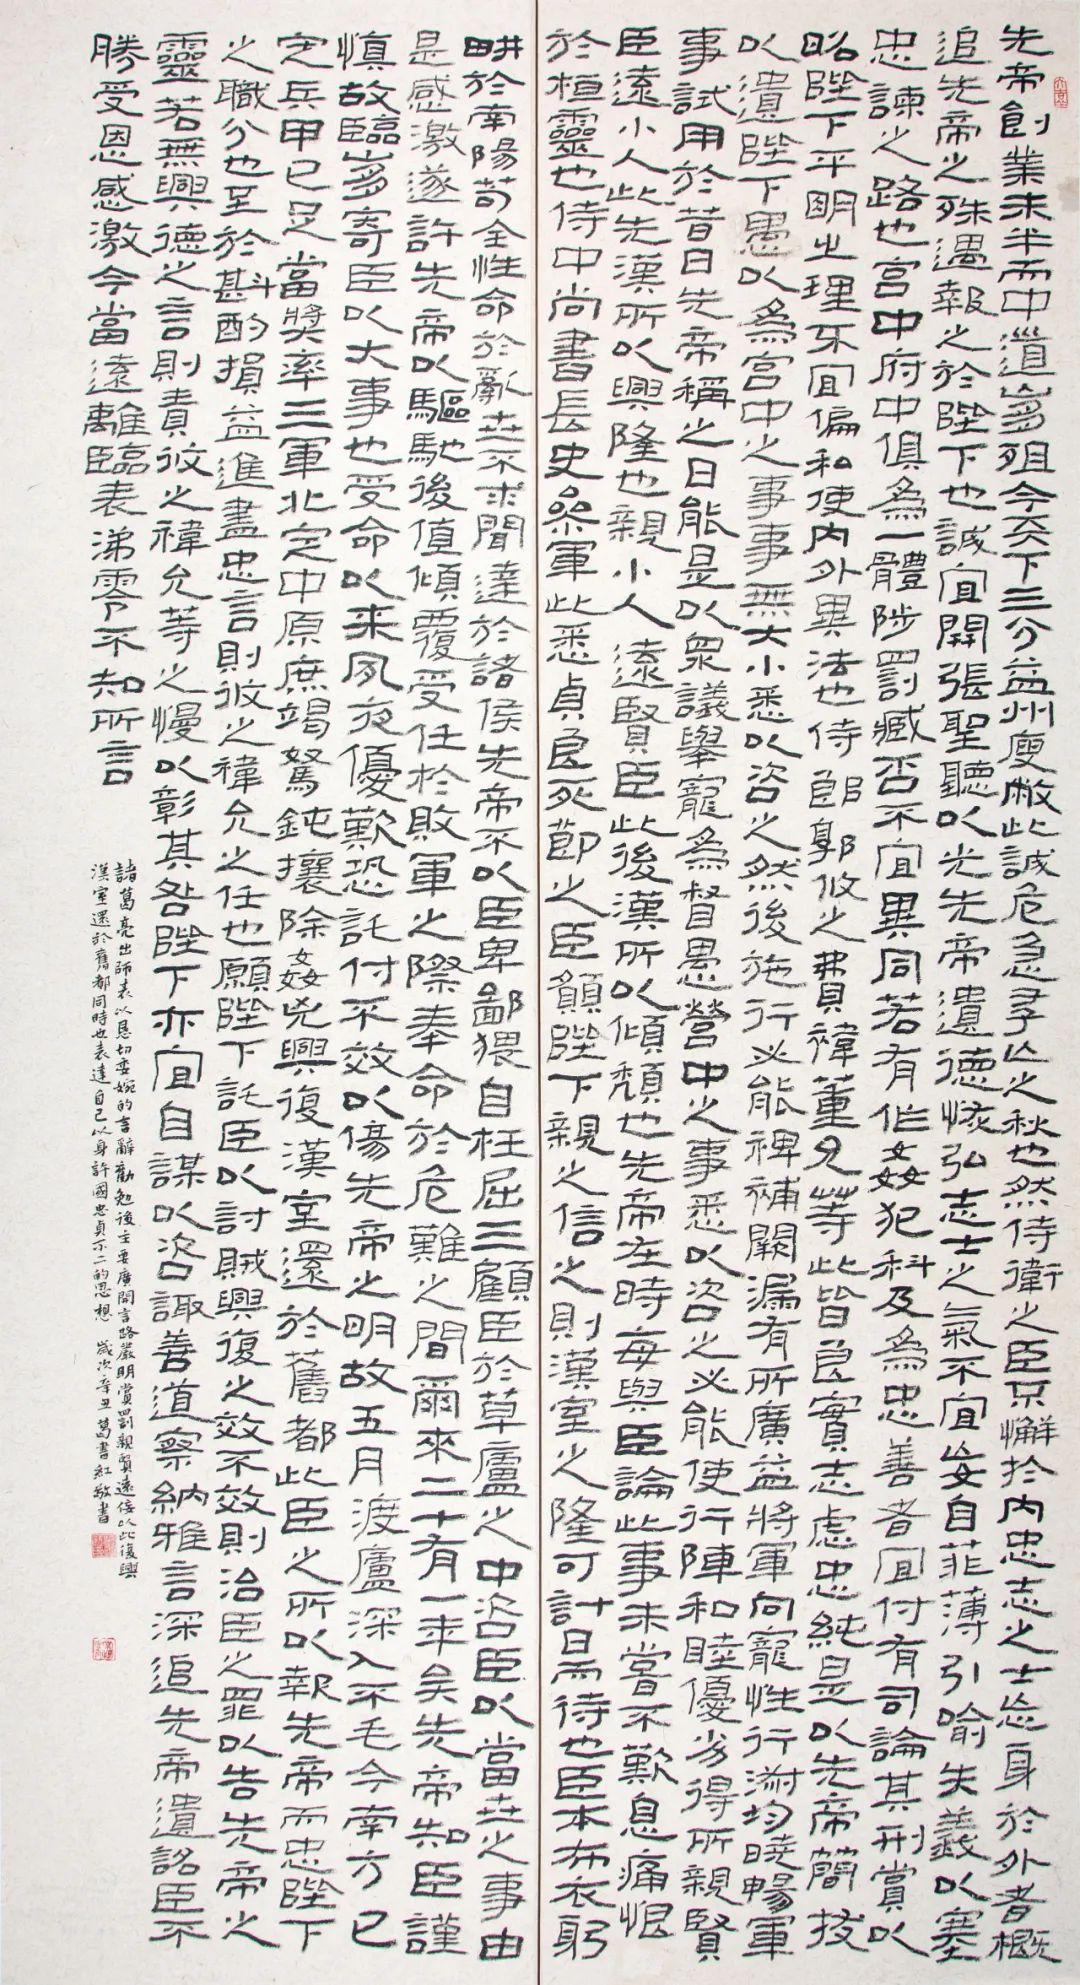 先帝創業未半而中道崩殂今天下三分益州疲敝此誠危急存亡之秋也然侍衛之臣不懈於內忠志之士忘身於外者概
追先帝之殊遇報之於陛下也誠宜開張聖聽以光先帝遺德恢弘志士之氣不宜妄自菲薄引喻失義以塞
忠諫之路也宮中府中俱為一體陟罰臧否不宜異同若有作姦犯科及為忠善者宜付有司論其刑賞以
昭陛下平明之理不宜偏私使內外異法也侍郎郭攸之費禕董允等此皆良實志慮忠純是以先帝簡拔
以遺陛下愚以為宮中之事事無大小悉以咨之然後施行必能裨補闕漏有所廣益將軍向寵性行淑均曉暢軍
事試用於昔日先帝稱之曰能是以眾議舉寵為督愚營中之事悉以咨之必能使行陣和睦優劣得所親賢
臣遠小人此先漢所以興隆也親小人遠賢臣此後漢所以傾頹也先帝在時每與臣論此事未嘗不歎息痛恨
於桓靈也侍中尚書長史參軍此悉貞良死節之臣願陛下親之信之則漢室之隆可計日而待也臣本布衣躬
耕於南陽苟全性命於亂世不求聞達於諸侯先帝不以臣卑鄙猥自枉屈三顧臣於草廬之中咨臣以當世之事由
是感激遂許先帝以驅馳後值傾覆受任於敗軍之際奉命於危難之間爾來二十有一年矣先帝知臣謹
慎故臨崩寄臣以大事也受命以來夙夜優歎恐託付不效以傷先帝之明故五月渡盧深入不毛今南方已
定兵甲已足當獎率三軍北定中原庶竭駑鈍攘除姦兇興復漢室還於舊都此臣之所以報先帝而忠陛下
之職分也至於斟酌損益進盡忠言則攸之禕允之任也願陛下託臣以討賊興復之效不效則治臣之罪以告先帝之
靈若無興德之言則責攸之禕允等之慢以彰其咎陛下亦宜自謀以咨諏善道察納雅言深追先帝遺詔臣不
勝受恩感激今當遠離臨表涕零不知所言
諸葛亮出師表以恳切委婉的言辭勸勉後主要廣開言路嚴明賞罰親賢遠佞以此復興
漢室還於舊都同時也表達自己以身許國忠貞不二的思想 歲次辛丑葛書紅敬書